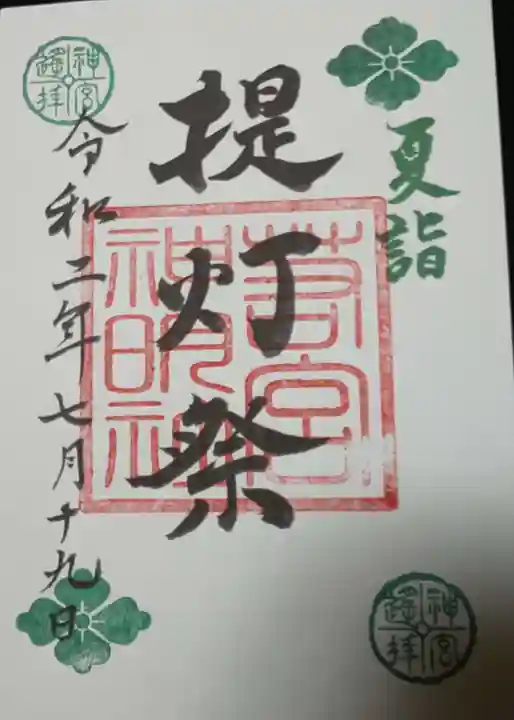 夏詣
提灯祭
若宮
神明社
令和二年七月十九日
神宮
遥拝
神宮
遥拝